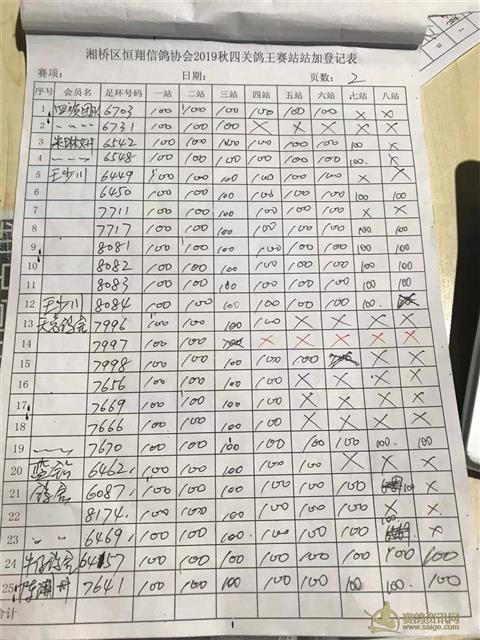 湘桥区恒翔信鸽协会2019秋四关鸽王赛站站加登记表
赛项： 日期： 页数：2
序号 会员名 足环号码 一站 二站 三站 四站 五站 六站 七站 八站
1 四资团队 6703 100 100 100 100 100 100 × ×
2 〃 〃 〃 6731 100 100 100 × × × × ×
3 6542 100 100 100 100 100 100 100 ×
4 〃 〃 6548 100 100 100 100 100 100 100. ×
5 王少川 6449 100 100 100 100 100 100 × ×
6 6450 100 100 100 100 100 100 100 100
7 7711 100 100 100 100 100 100 × ×
8 7717 100 100 100 100 100 100 100 100
9 8081 100 100 100 100 100 100 100 100
10 8082 100 100 100 100 100 100 100 100
11 8083 100 100 100 100 100 100 100 100
12 王少川 8084 100 100 100 100 100 100 100.
13 7996 100 100 100 100 × × × ×
14 7997 100 100 × × × × ×
15 7998 100 100 100 100 100 × ×
16 7656 100 100 100 100 × × × ×
17 7669 100 100 100 100 × × × ×
18 7666 100 100 100 100 × × × ×
19 7670 100 100 100 100 100 100 100. 100
20 6462. 100 100 100 100 100 × × ×
21 鸽舍 6087. 100 100 100 100 100 100 100 ×
22 8174. 100 100 100 100 100 100 × ×
23 〃 〃 6469. 100 100 100 100 100 100 ×
24 牛仔鸽舍 6457 100 100 100 100 100 100 100 100
25 7641 100 100 100 100 100 100 100 100
合计
赛鸽资讯网
www.saige.com